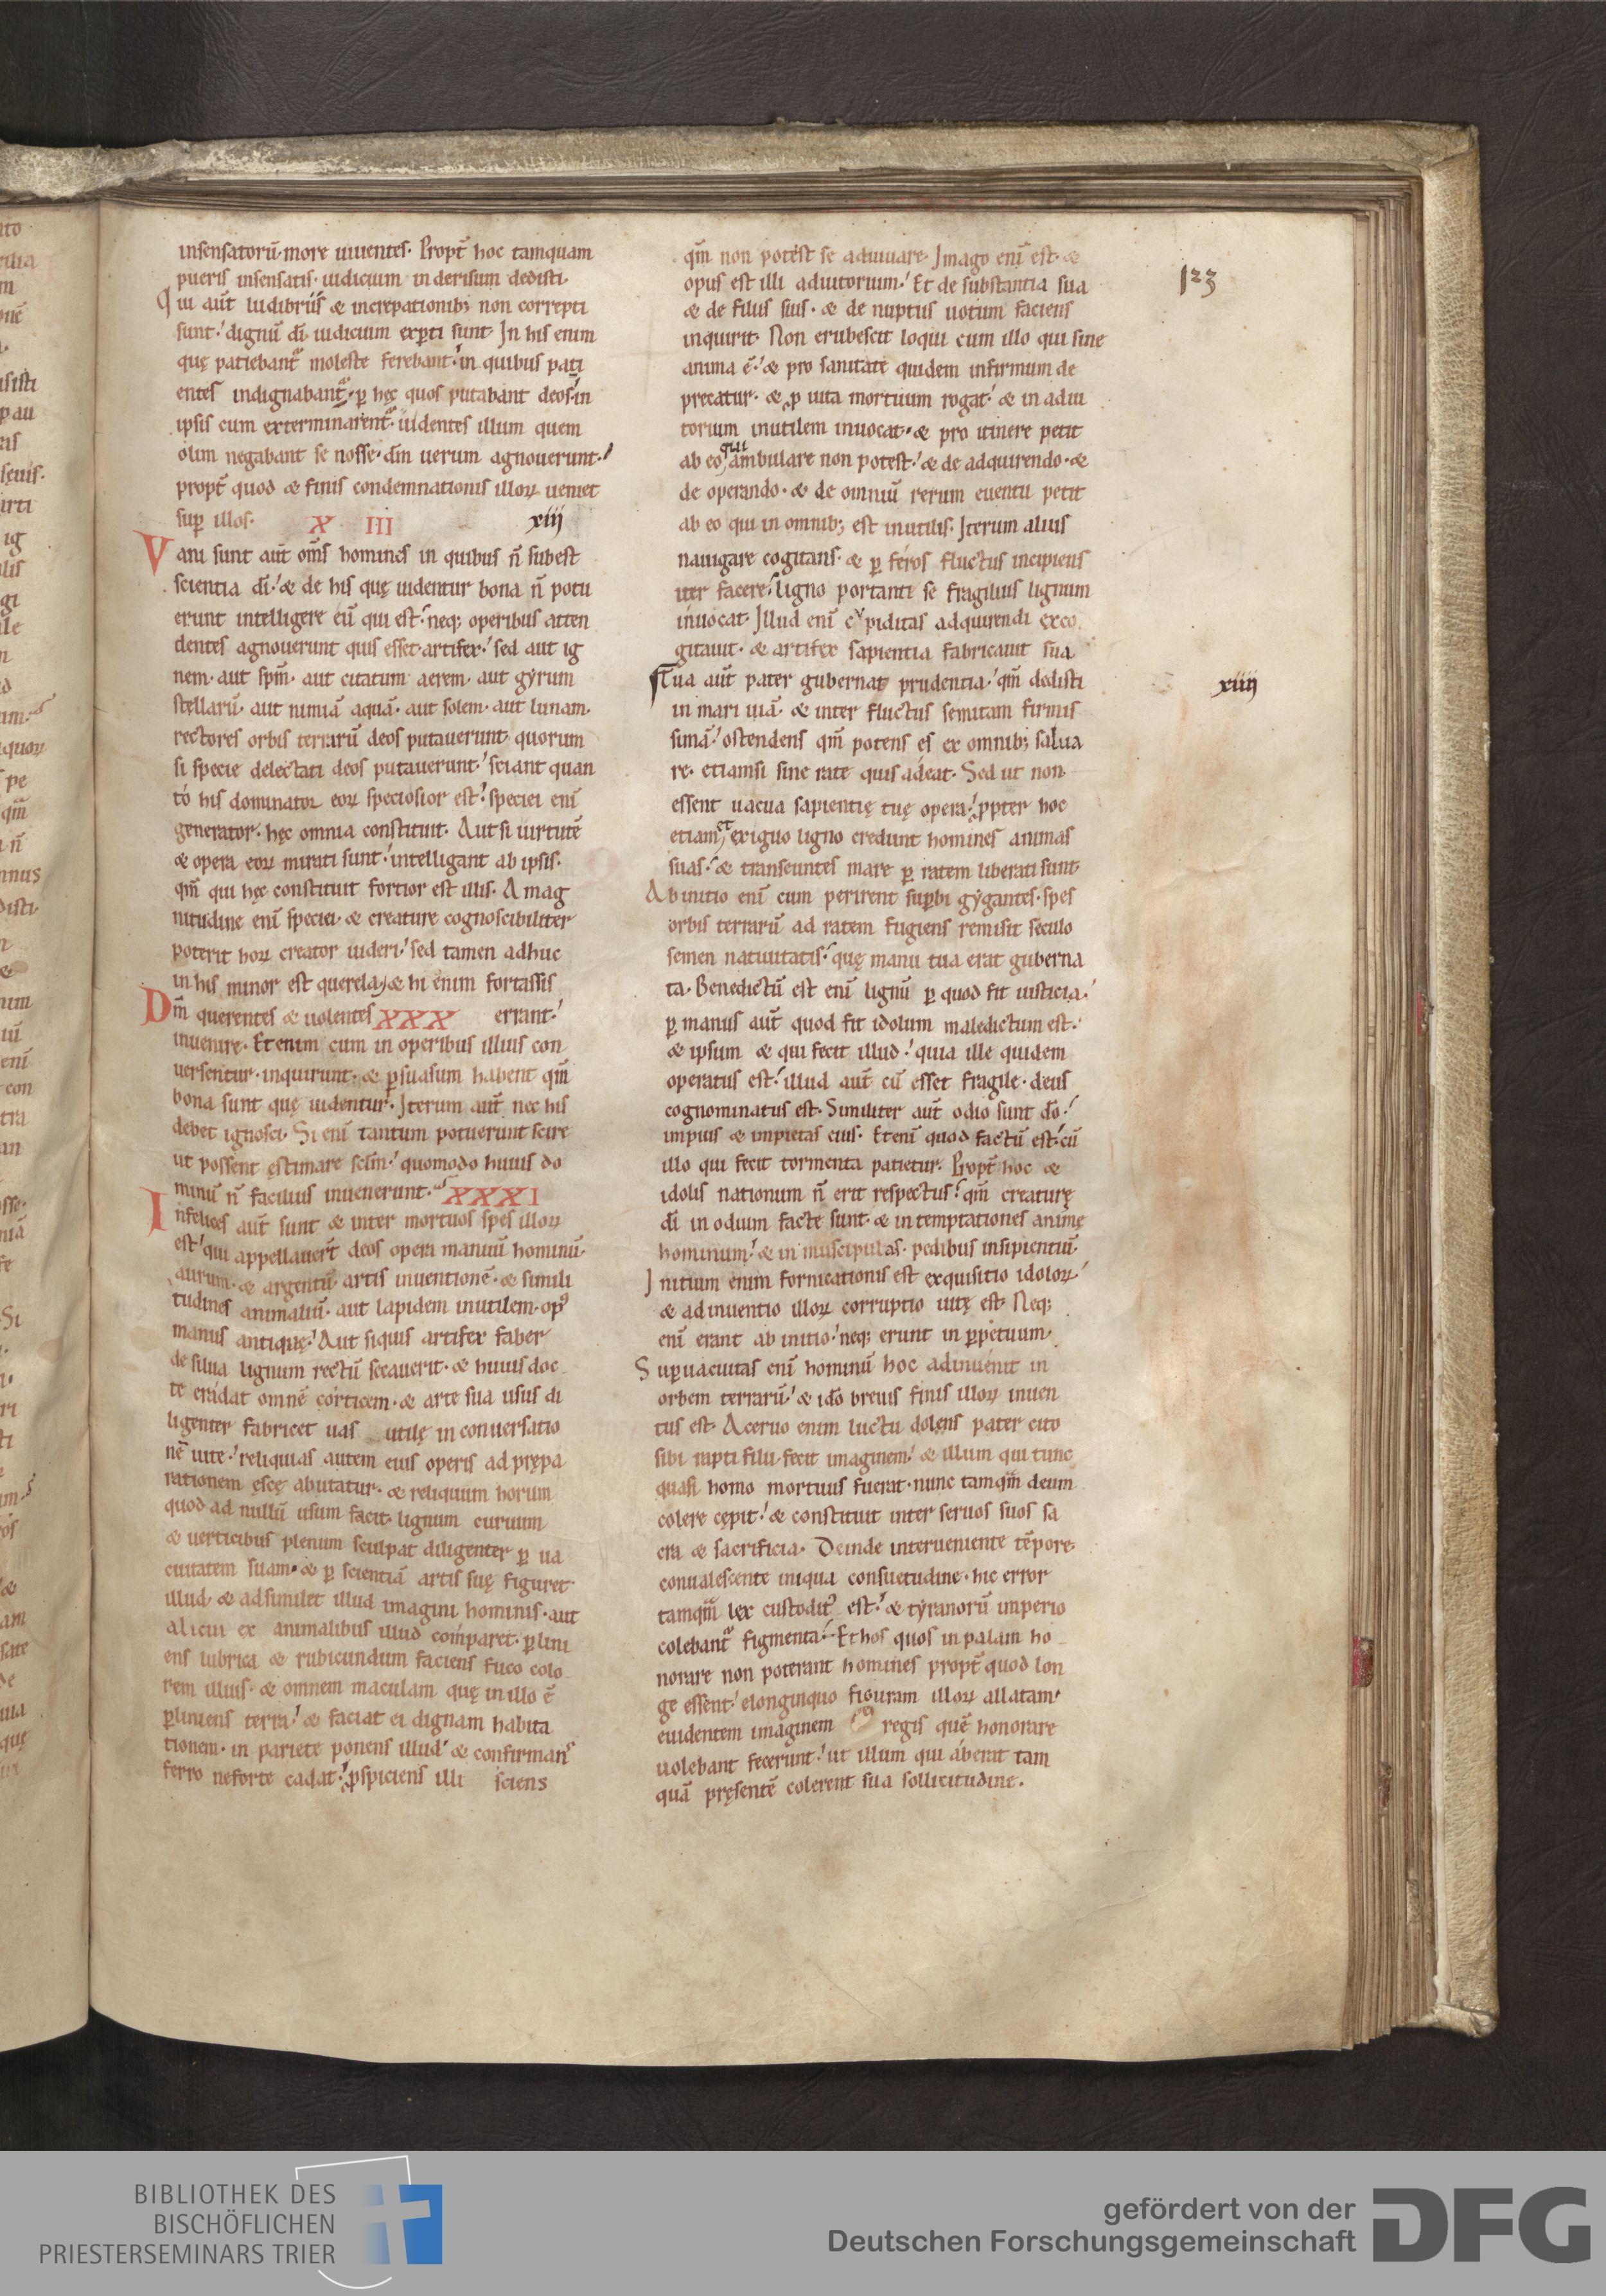 insensatorū· more uiuentes· Propt̄ hoc tamquam
pueris insensatis· iudicium in derisum dedisti·
Qui aūt ludibriis & increpationib; non correpti
sunt· dignū dī iudicium exꝑti sunt· In his enim
quę patiebant᷑ moleste ferebant· in quibus pati
entes indignabant᷑· ꝑ hęc quos putabant deos· in
ipsis cum exterminarent᷑· uidentes illum quem
olim negabant se nosse· dm̄ uerum agnouerunt·
propt̄ quod & finis condemnationis illoꝝ ueniet
suꝑ illos· X III xiij
Vani sunt aūt om̄s homines in quibus n̄ subest
scientia dī· & de his quę uidentur bona n̄ potu
erunt intelligere eū qui est· neq; operibus atten
dentes agnouerunt quis esset artifex· sed aut ig
nem· aut spm̄· aut citatum aerem· aut gẏrum
stellarū· aut nimiā aquā· aut solem· aut lunam·
rectores orbis terrarū deos putauerunt· quorum
si specie delectati deos putauerunt· sciant quan
to his dominator eoꝝ speciosior est· speciei enī
generator· hęc omnia constituit· Aut si uirtutē
& opera eoꝝ mirati sunt· intelligant ab ipsis·
qm̄ qui hęc constituit fortior est illis· A mag
nitudine enī speciei· & creature cognoscibiliter
poterit hoꝝ creator uideri· sed tamen adhuc
in his minor est querela· & hi enim fortassis
Dm̄ querentes & uolentes XXX errant·
inuenire· Etenim cum in operibus illius con
uersentur· inquirunt· & ꝑsuasum habent qm̄
bona sunt quę uidentur· Iterum aūt nec his
debet ignosci· Si enī tantum potuerunt scire
ut possent estimare sclm̄· quomodo huius do
minū n̄ facilius inuenerunt· XXXI
Infelices aūt sunt & inter mortuos spes illoꝝ
est· qui appellauer̄t deos opera manuū hominū·
aurum· & argentū· artis inuentionē· & simili
tudines animaliū· aut lapidem inutilem· opꝰ
manus antiquę· Aut siquis artifex faber
de silua lignum rectū secauerit· & huius doc
te eradat omnē corticem· & arte sua usus di
ligenter fabricet uas utilę in conuersatio
nē uite· reliquias autem eius operis ad prępa
rationem escę abutatur· & reliquum horum
quod ad nullū usum facit· lignum curuum
& uerticibus plenum sculpat diligenter ꝑ ua
cuitatem suam· & ꝑ scientiā artis suę figuret
illud· & adsimilet illud imagini hominis· aut
alicui ex animalibus illud comparet· ꝑlini
ens lubrica & rubicundum faciens fuco colo
rem illius· & omnem maculam quę in illo ē
ꝑliniens terra· & faciat ei dignam habita
tionem· in pariete ponens illud· & confirmans
ferro neforte cadat· ꝓspiciens illi sciens
qm̄ non potest se adiuuare· Imago enī est· &
opus est illi adiutorium· Et de substantia sua
& de filiis suis· & de nuptiis uotum faciens
inquirit· Non erubescit loqui cum illo qui sine
anima ē· & pro sanitate quidem infirmum de
precatur· & ꝓ uita mortuum rogat· & in adiu
torium inutilem inuocat· & pro itinere petit
qui
ab eo ambulare non potest· & de adquirendo· &
de operando· & de omniū rerum euentu petit
ab eo qui in omnib; est inutilis· Iterum alius
nauigare cogitans· & ꝑ feros fluctus incipiens
iter facere· ligno portanti se fragilius lignum
inuocat· Illud enī cupiditas adquirendi exco
gitauit· & artifex sapientia fabricauit sua
Tua aūt pater gubernat prudentia· qm̄ dedisti xiiij
in mari uiā· & inter fluctus semitam firmis
simā· ostendens qm̄ potens es ex omnib; salua
re· etiamsi sine rate quis adeat· Sed ut non
essent uacua sapientię tuę opera· ꝓpter hoc
et
etiam exiguo ligno credunt homines animas
suas· & transeuntes mare ꝑ ratem liberati sunt·
Ab initio enī cum perirent suꝑbi gẏgantes· spes
orbis terrarū ad ratem fugiens remisit seculo
semen natiuitatis· quę manu tua erat guberna
ta· Benedictū est enī lignū ꝑ quod fit iusticia·
ꝑ manus aūt quod fit idolum maledictum est·
& ipsum & qui fecit illud· quia ille quidem
operatus est· illud aūt cū esset fragile· deus
cognominatus est· Similiter aūt odio sunt dō·
impius & impietas eius· Etenī quod factū est· cū
illo qui fecit tormenta patietur· Propt̄ hoc &
idolis nationum n̄ erit respectus· qm̄ creaturę
dī in odium facte sunt· & in temptationes animę
hominum· & in muscipulas· pedibus insipientiū·
Initium enim fornicationis est exquisitio idoloꝝ
& adinuentio illoꝝ corruptio uitę est· Neq;
enī erant ab initio· neq; erunt in ꝑpetuum·
Suꝑuacuitas enī hominū hoc adinuenit in
orbem terrarū· & idō breuis finis illoꝝ inuen
tus est· Aceruo enim luctu dolens pater cito
sibi rapti filii· fecit imaginem· & illum qui tunc
quasi homo mortuus fuerat· nunc tamqm̄ deum
colere cępit· & constituit inter seruos suos sa
cra & sacrificia· Deinde interueniente tēpore·
conualescente iniqua consuetudine· hic error
tamqm̄ lex custodit᷑ est· & tẏranorū imperio
colebant᷑ figmenta· Et hos quos in palam ho
norare non poterant homines propt̄ quod lon
ge essent· elonginquo figuram illoꝝ allatam·
euidentem imaginem regis quē honorare
uolebant fecerunt· ut illum qui aberat tam
quā pręsentē colerent sua sollicitudine·
123
BIBLIOTHEK DES
BISCHÖFLICHEN
PRIESTERSEMINARS TRIER
gefördert von der
Deutschen Forschungsgemeinschaft
DFG